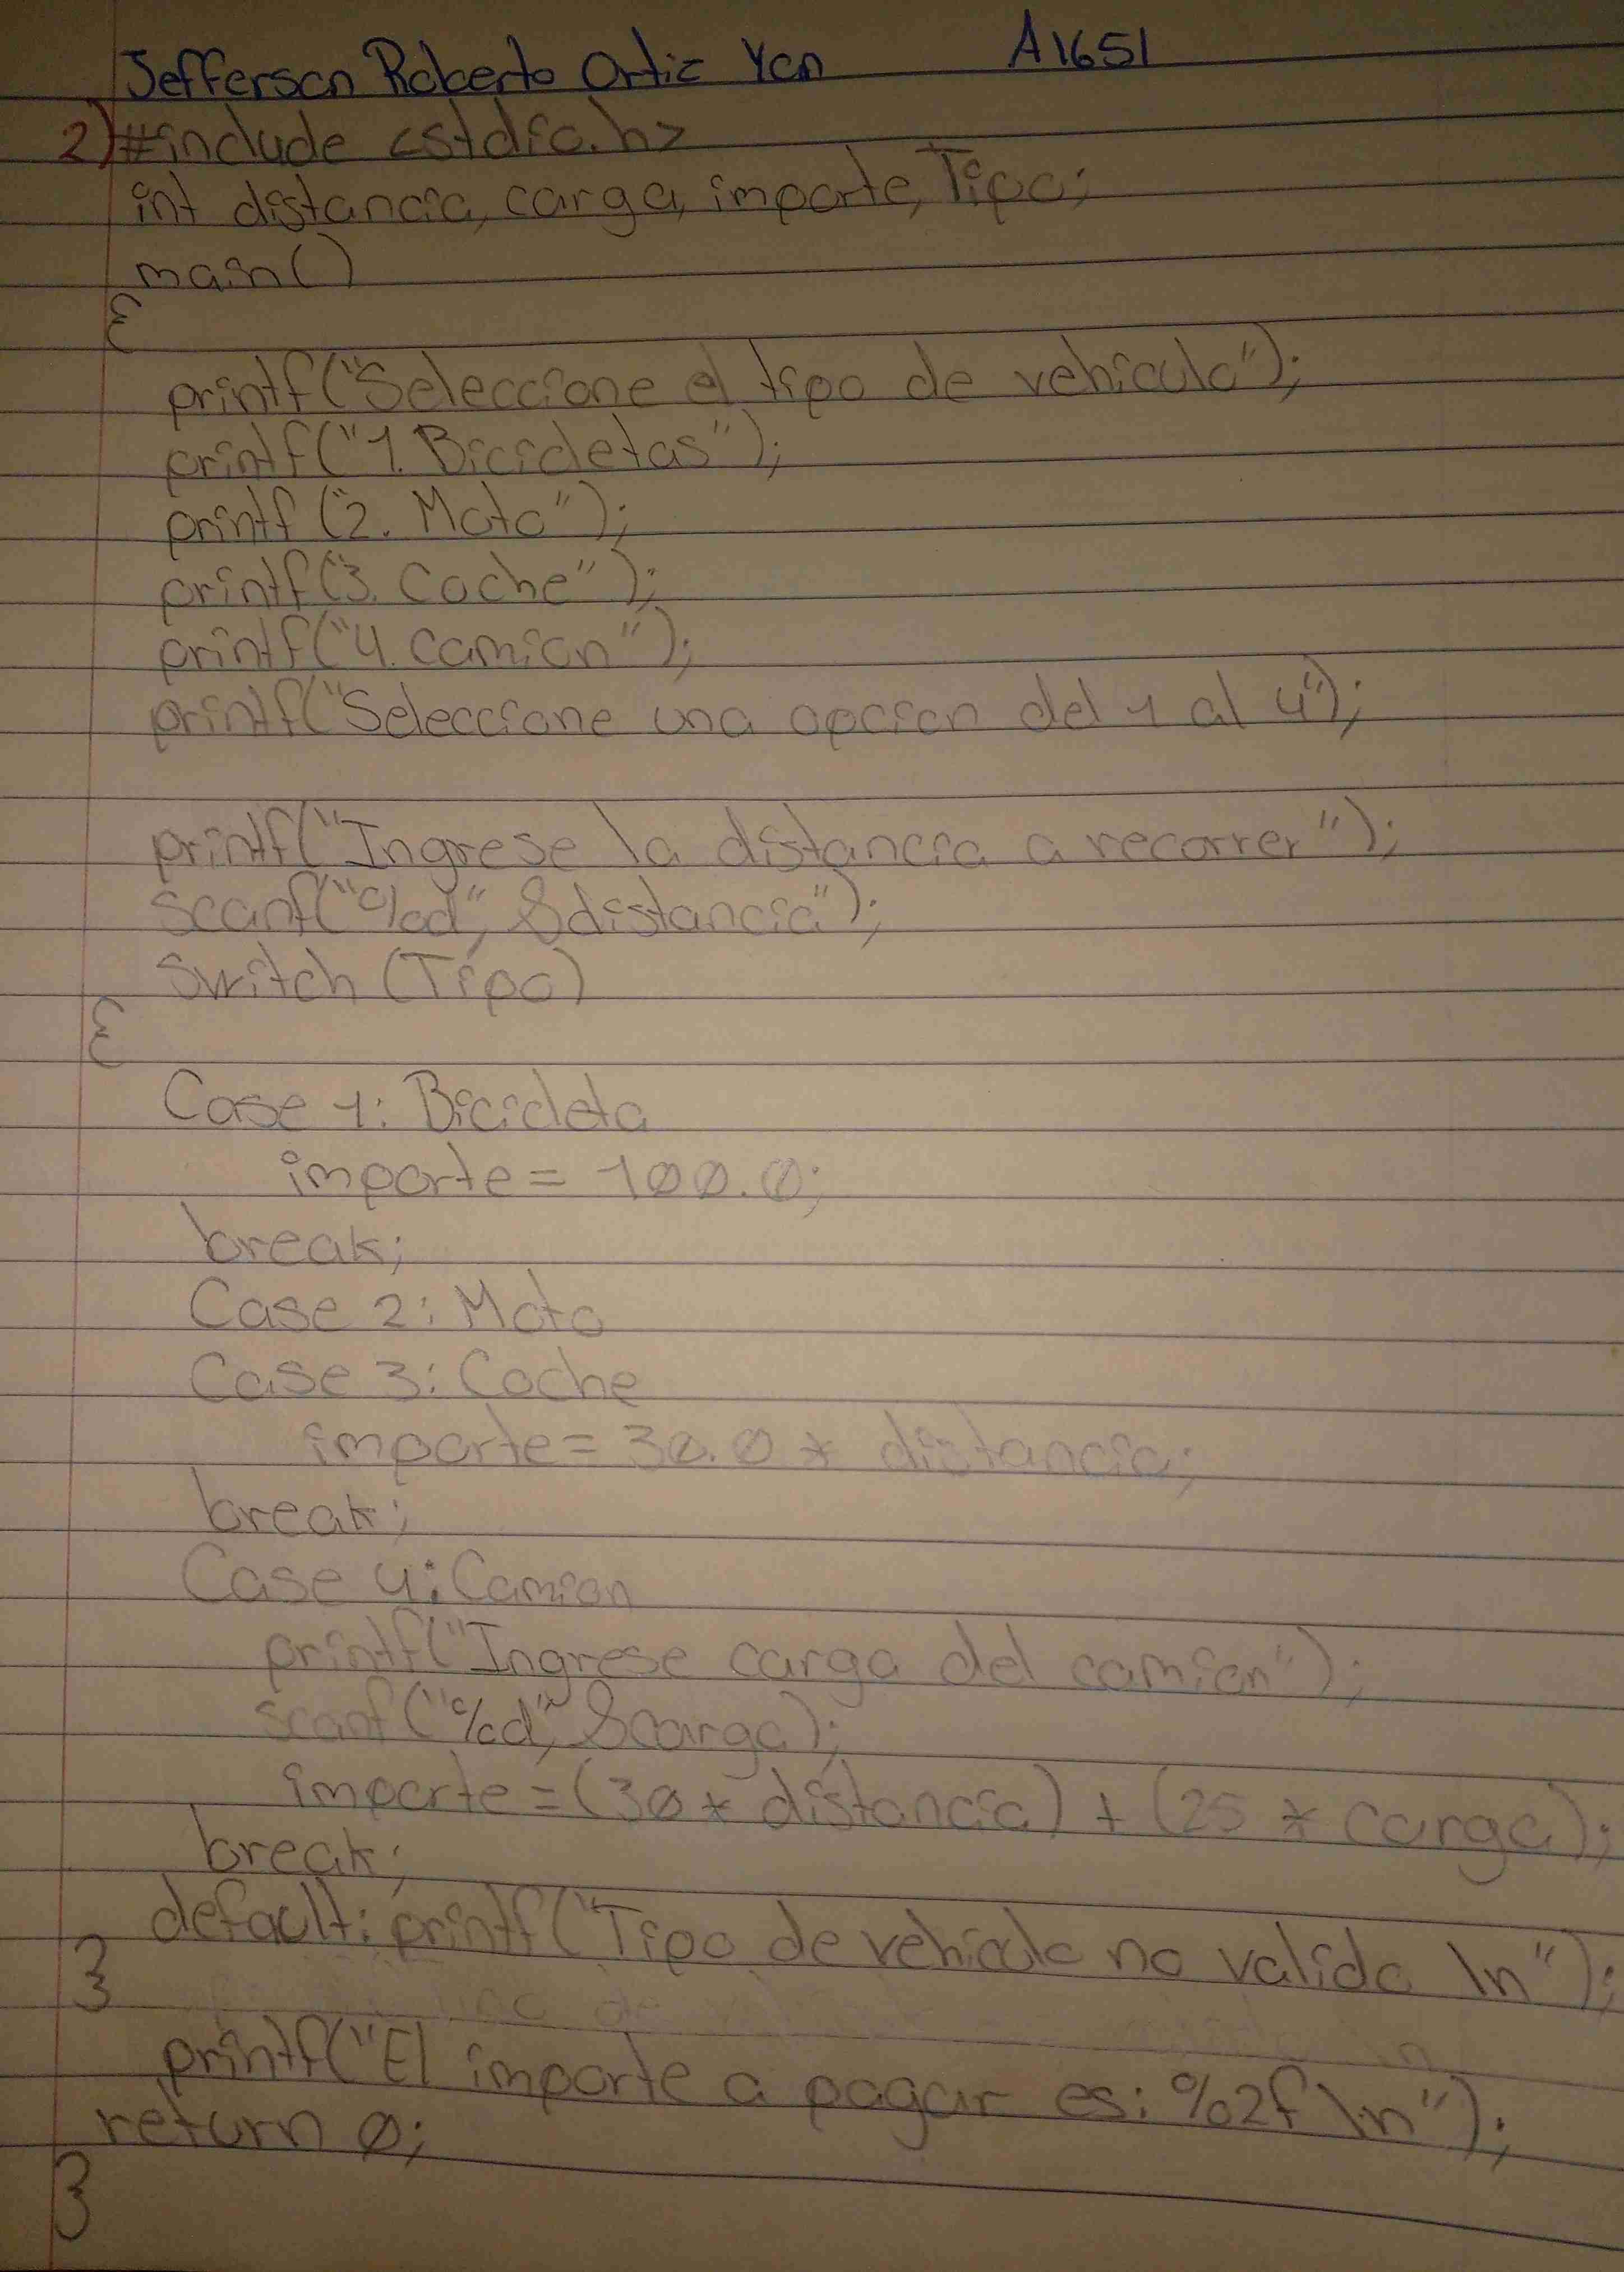 Jefferson Roberto Ortiz Ycn A1651
2) #include <stdio.h>
int distancia, carga, importe, Tipo;
main()
{
printf("Seleccione el tipo de vehiculo");
printf("1. Bicicletas");
printf("2. Moto");
printf("3. Coche");
printf("4. Camion");
printf("Seleccione una opcion del 1 al 4");
printf("Ingrese la distancia a recorrer");
scanf("%d", &distancia");
Switch (Tipo)
{
Case 1: Bicicleta
importe = 100.0;
break;
Case 2: Moto
Case 3: Coche
importe = 30.0 * distancia;
break;
Case 4: Camion
printf("Ingrese carga del camion");
scanf("%d", &carga);
importe = (30 * distancia) + (25 * carga);
break;
default: printf("Tipo de vehiculo no valido \n");
}
printf("El importe a pagar es: %2f \n");
return 0;
}